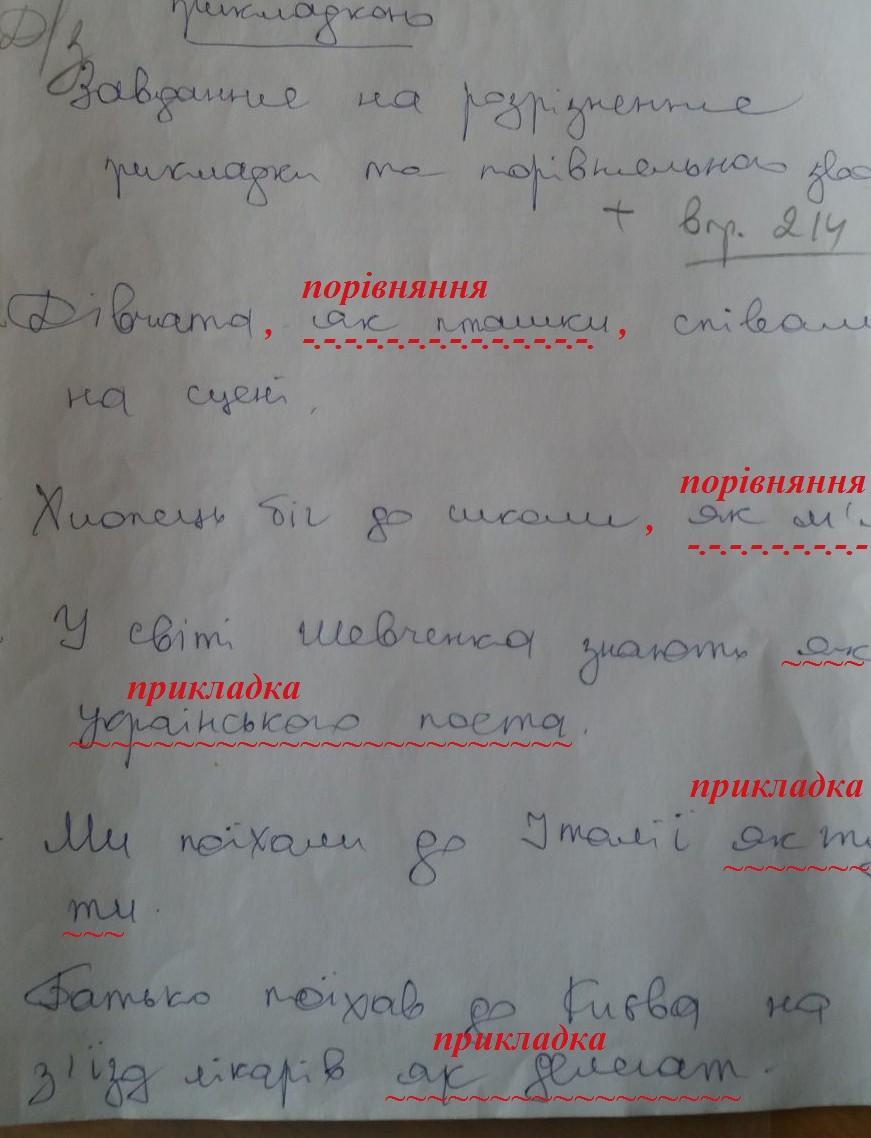 Д/з прикладкою
Завдання на розрізнення
прикладки та порівняльного зво
+ впр. 214
порівняння
Дівчата, як пташки, співали
на сцені.
порівняння
Хлопець біг до школи, як м'я
У світі Шевченка знають як
прикладка
українського поета.
прикладка
Ми поїхали до Італії як ту
ти.
Батько поїхав до Києва на
прикладка
з'їзд лікарів як делегат.